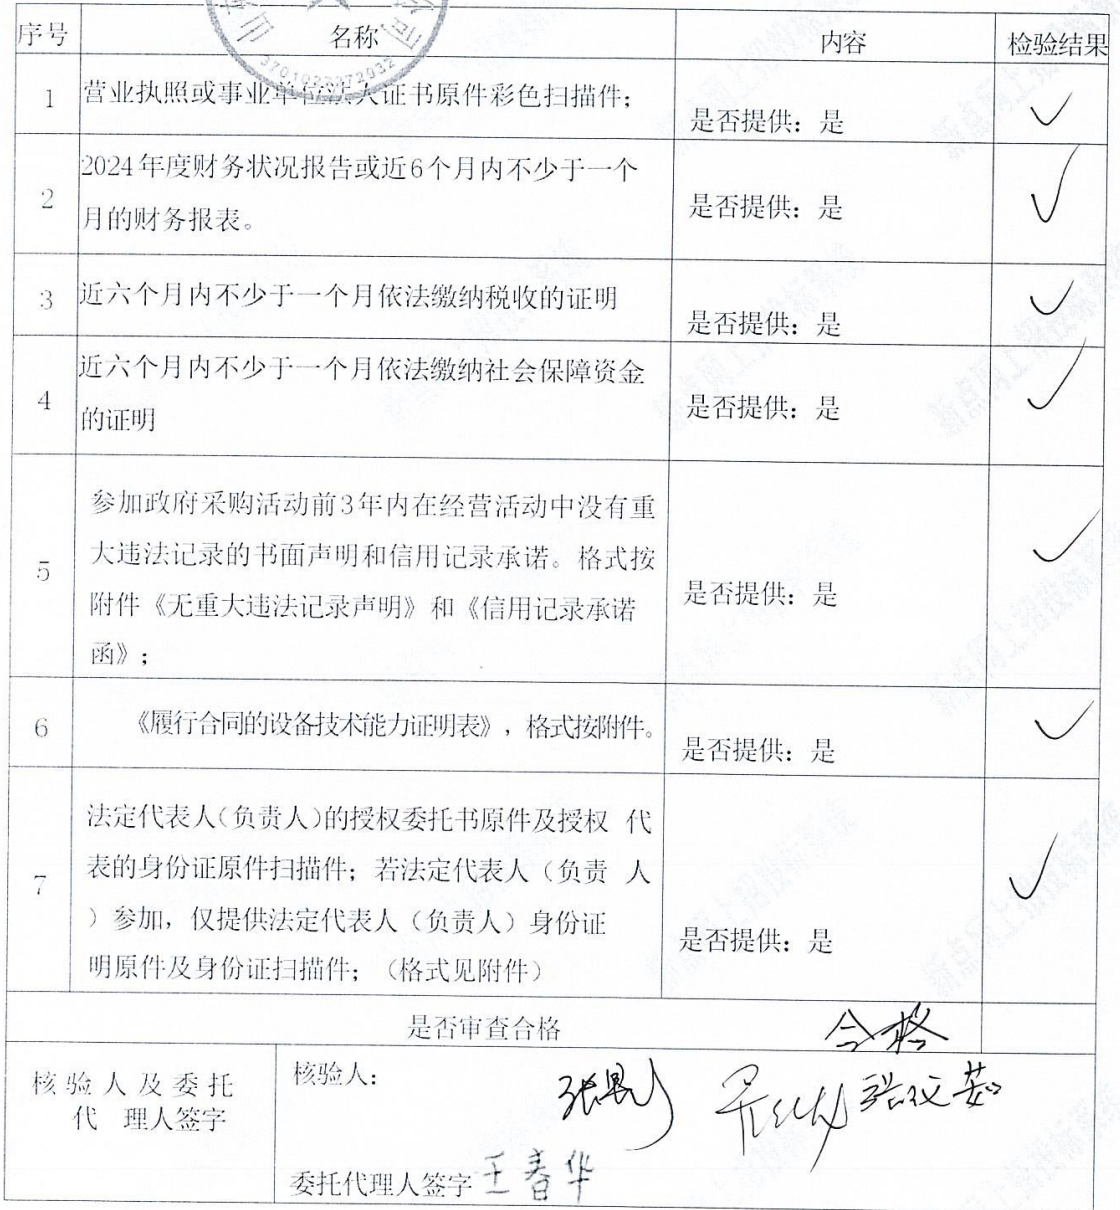 序号 名称 内容 检验结果
3701023272932
1 营业执照或事业单位法人证书原件彩色扫描件; 是否提供: 是 ✓
2 2024年度财务状况报告或近6个月内不少于一个
月的财务报表。 是否提供: 是 ✓
3 近六个月内不少于一个月依法缴纳税收的证明 是否提供: 是 ✓
4 近六个月内不少于一个月依法缴纳社会保障资金
的证明 是否提供: 是 ✓
5 参加政府采购活动前3年内在经营活动中没有重
大违法记录的书面声明和信用记录承诺。格式按
附件《无重大违法记录声明》和《信用记录承诺
函》; 是否提供: 是 ✓
6 《履行合同的设备技术能力证明表》,格式按附件。 是否提供: 是 ✓
7 法定代表人(负责人)的授权委托书原件及授权 代
表的身份证原件扫描件; 若法定代表人(负责 人
)参加, 仅提供法定代表人(负责人)身份证
明原件及身份证扫描件; (格式见附件) 是否提供: 是 ✓
是否审查合格 合格
核验人及委托
代 理人签字
核验人:
委托代理人签字 王春华